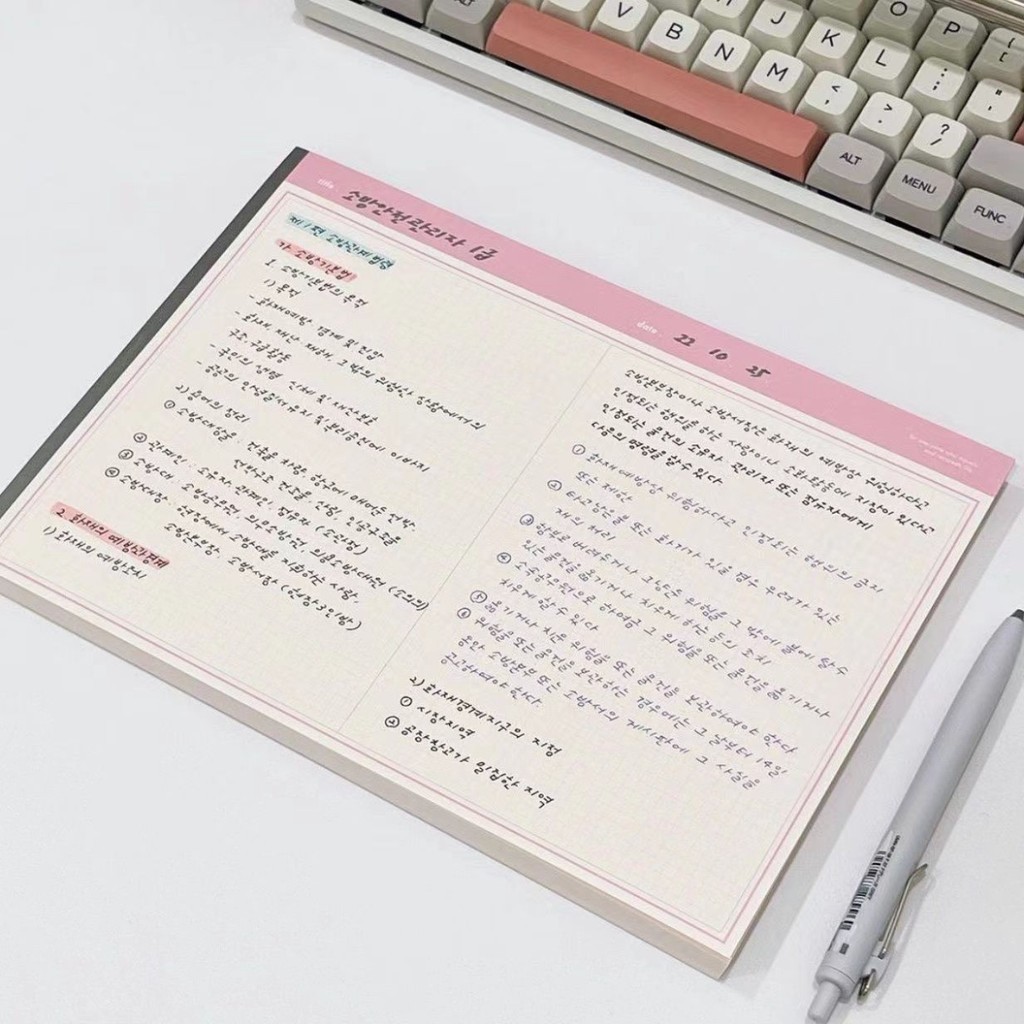 ALT
V
B
N
M
J
K
L
O
P
< ,
> .
? /
: ;
" '
ALT
MENU
FUNC
title
소방안전관리자 1급
date
22 10 25
제1편 소방관계법령
가. 소방기본법
1. 소방기본법의 목적
1) 목적
- 화재예방 경계 및 진압
- 화재, 재난 재해, 그 밖의 위급한 상황에서의
구조·구급활동
- 국민의 생명 신체 및 재산보호
- 공공의 안녕질서 유지 및 복리증진에 이바지
2) 용어의 정리
① 소방대상물 : 건축물, 차량, 항구에 매어둔 선박
선박건조 구조물, 산림, 인공구조물
② 관계인 : 소유자, 관리인, 점유자 (소관점)
③ 소방대 : 소방공무원, 의무소방원, 의용소방대원 (소의의)
④ 소방대장 : 현장에서 소방대를 지휘하는 사람,
소방본부장, 소방서장 (현장3인방)
2. 화재의 예방과 경계
1) 화재의 예방조치
소방본부장이나 소방서장은 화재의 예방상 위험하다고
인정되는 행위를 하는 사람이나 소화활동에 지장이 있다고
인정되는 물건의 소유자 관리자 또는 점유자에게
다음의 명령을 할 수 있다
① 화재예방상 위험하다고 인정되는 행위의 금지
또는 제한
② 타고남은 불 또는 화기가 있을 염려 우려가 있는
재의 처리
③ 함부로 버려두거나 그냥둔 위험물 그 밖에 불에 탈 수
있는 물건을 옮기거나 치우게 하는 등의 조치
④ 소속공무원으로 하여금 그 위험물 또는 물건을 옮기거나
치우게 할 수 있다
⑤ 옮기거나 치운 위험물 또는 물건을 보관하여야 한다
⑥ 위험물 또는 물건을 보관하는 경우에는 그 날부터 14일
동안 소방본부 또는 소방서의 게시판에 그 사실을
공고하여야 한다
2) 화재경계지구의 지정
① 시장지역
② 공장창고가 밀집한 지역